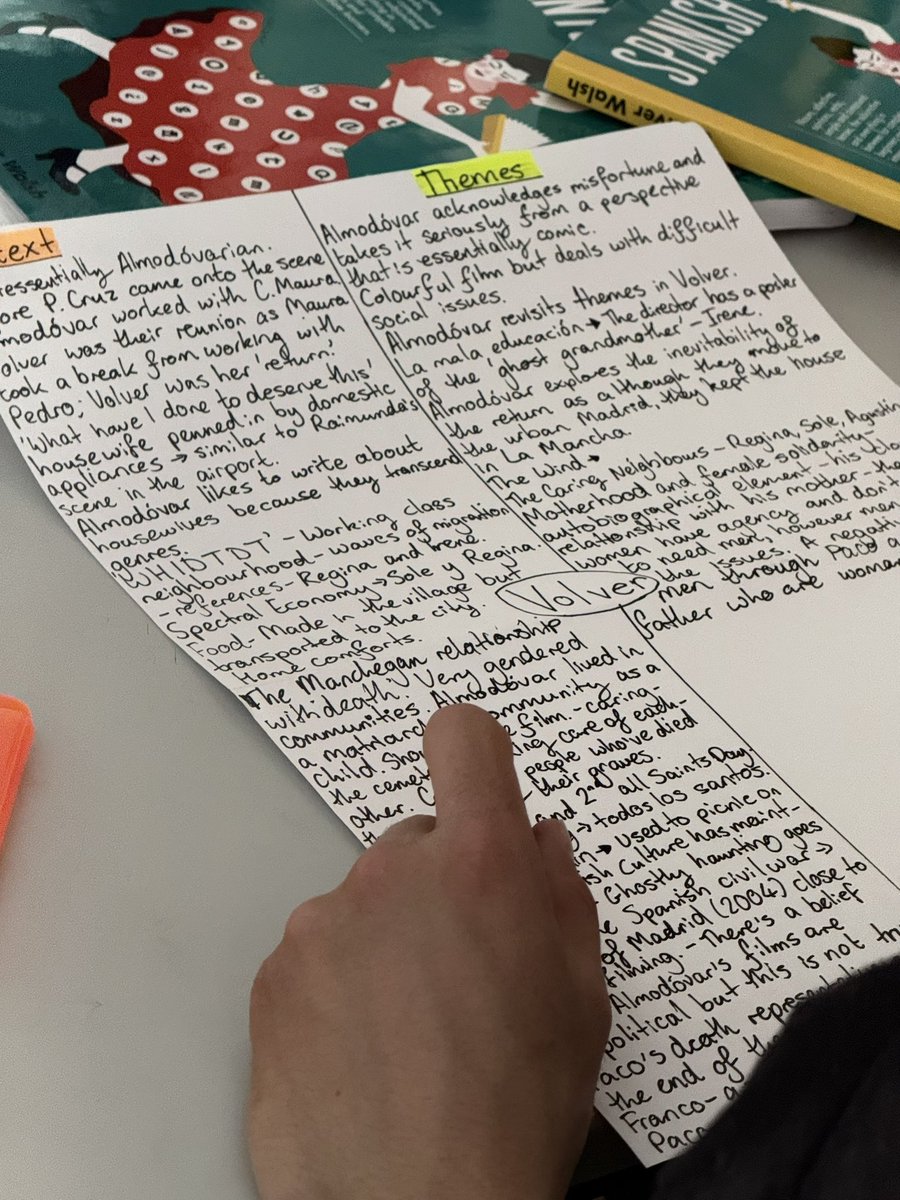 SPANISH
Oliver Walsh
text
Themes
ressentially Almodóvarian.
ore P. Cruz came onto the scene
modóvar worked with C. Maura.
olver was their reunion as Maura
took a break from working with
Pedro; Volver was her 'return'.
'What have I done to deserve this'
housewife penned in by domestic
appliances → similar to Raimunda's
scene in the airport.
Almodóvar likes to write about
housewives because they transcend
genres.
'WHIDTDT' - Working class
neighbourhood - waves of migration
- references - Regina and Irene.
Spectral Economy → Sole y Regina.
Food - Made in the village but
transported to the city.
Home comforts.
The Manchegan relationship
with death. Very gendered
communities. Almodóvar lived in
a matriarch community as a
child. Sho e film. - caring -
the cemet ing care of each -
other. people who've died
their graves.
and 2nd all Saints Day.
→ todos los santos.
used to picnic on
Culture has maint -
Ghostly haunting goes
Spanish civil war →
of Madrid (2004) close to
filming - There's a belief
Almodóvar's films are
political but this is not
Paco's death
the end of
Franco -
Paco
Almodóvar acknowledges misfortune and
takes it seriously from a perspective
that is essentially comic.
Colourful film but deals with difficult
social issues.
Almodóvar revisits themes in Volver.
La mala educación → The director has a poster
of the 'ghost grandmother' - Irene.
Almodóvar explores the inevitability of
the return as although they move to
the urban Madrid, they kept the house
in La Mancha.
The Wind →
The Caring Neighbours - Regina, Sole, Agustin
Motherhood and female solidarity -
autobiographical element - his
relationship with his mother - the
women have agency and don't
to need men, however men
the issues. A negati
men through Paco a
father who are woman
Volver